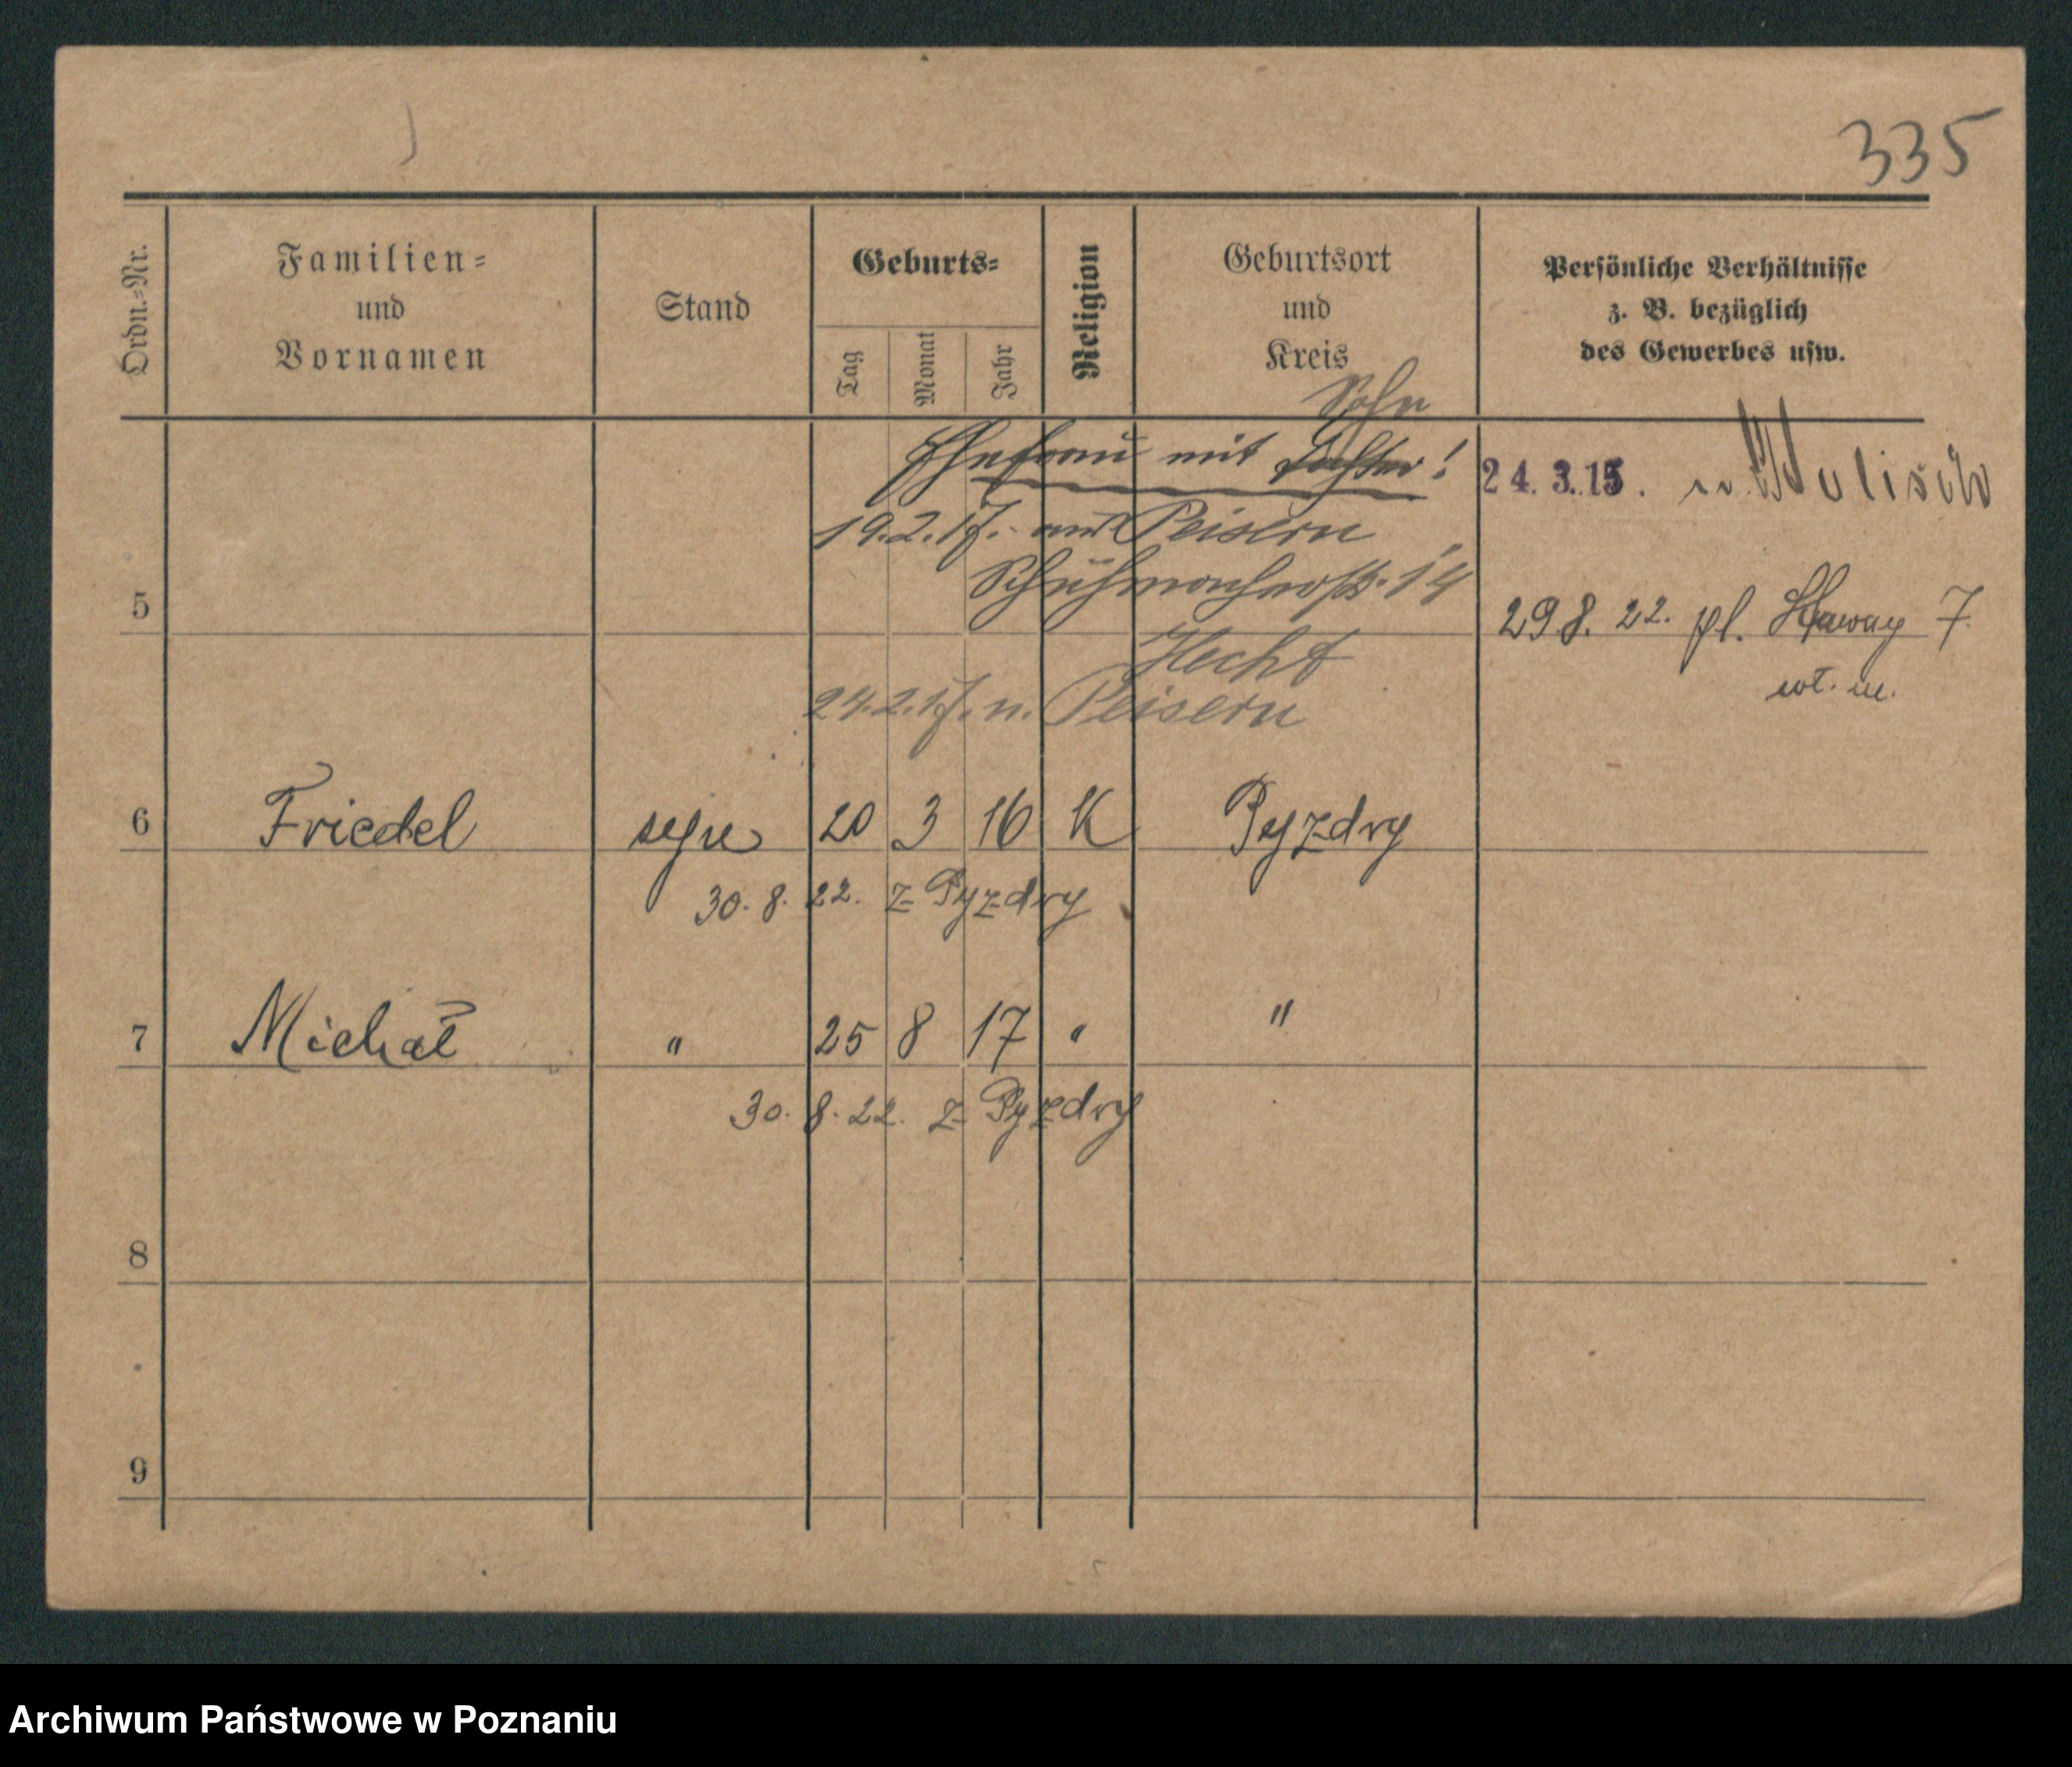 335
Ordn.=Nr.
Familien=
und
Vornamen
Stand
Geburts=
Tag
Monat
Jahr
Religion
Geburtsort
und
Kreis
Persönliche Verhältnisse
z. B. bezüglich
des Gewerbes usw.
Sohn
Ehefrau mit Tochter!
24.3.15. n. Wulisch
19.2.17. aus Peisern
Schuhmacherstr. 14
5
29.8. 22. pl. 7.
Hecht
wt. m.
24.2.17. n. Peisern
6 Friedel 20 3 16 K Pyzdry
30. 8. 22. z Pyzdry
7 Michał " 25 8 17 " "
30. 8. 22. z Pyzdry
8
9
Archiwum Państwowe w Poznaniu